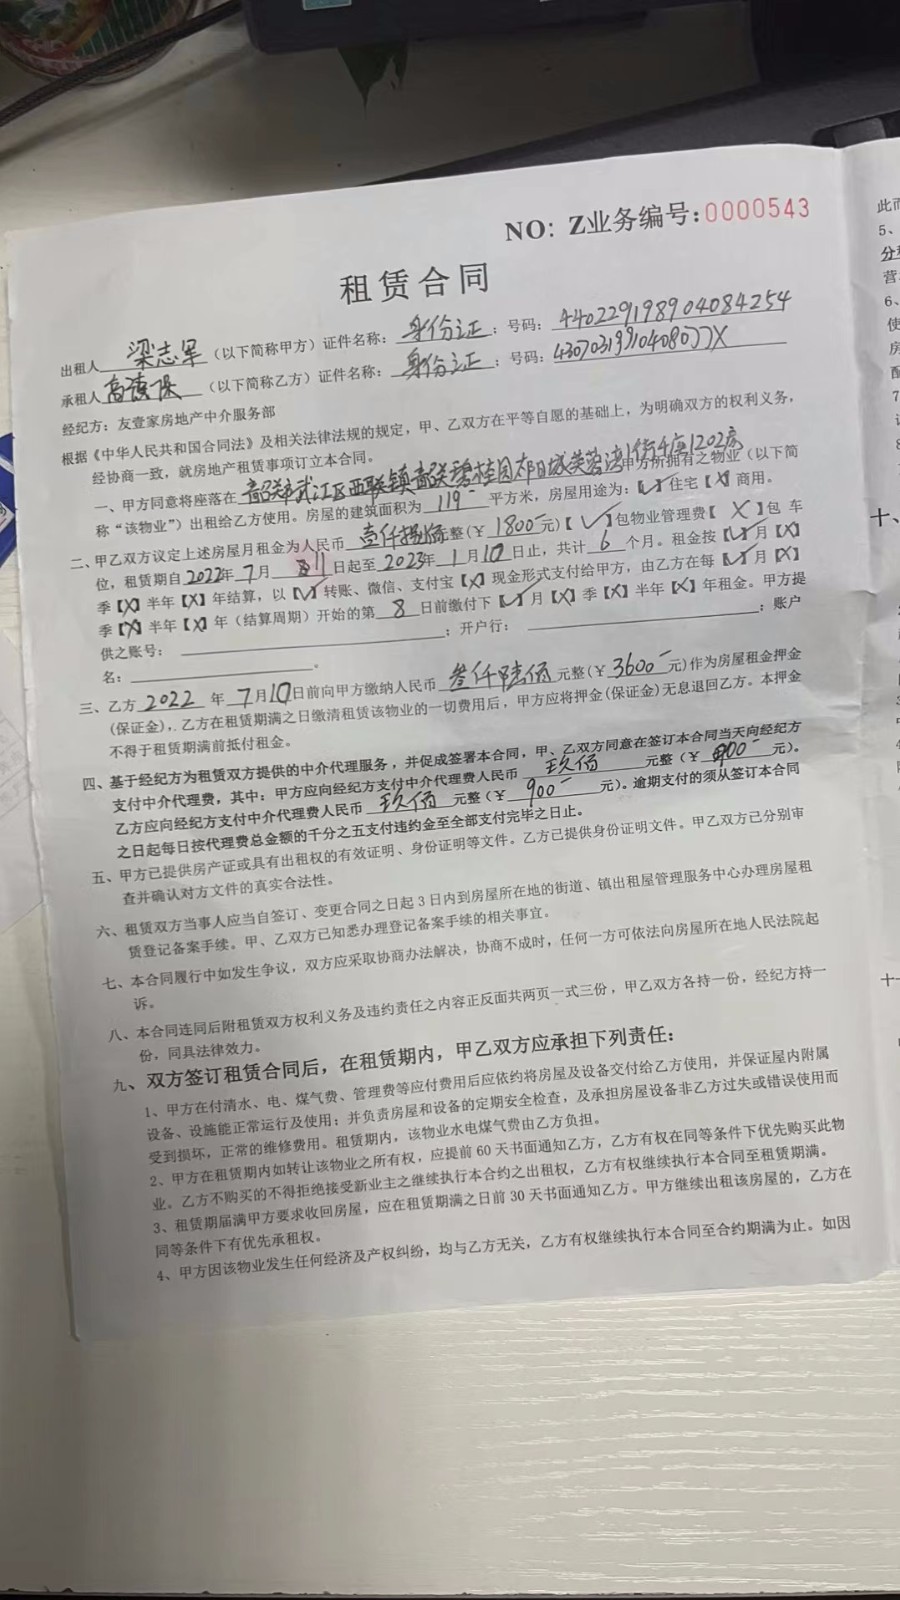 NO：Z业务编号：0000543
租赁合同
出租人 梁志军 （以下简称甲方）证件名称： 身份证 ；号码： 440229198904084254
承租人 （以下简称乙方）证件名称： 身份证 ；号码：
经纪方：友壹家房地产中介服务部
根据《中华人民共和国合同法》及相关法律法规的规定，甲、乙双方在平等自愿的基础上，为明确双方的权利义务，
经协商一致，就房地产租赁事项订立本合同。
一、甲方同意将座落在 韶关市武江区西联镇韶关碧桂园太阳城芙蓉湾1街4座1202房 甲方所拥有之物业（以下简
称“该物业”）出租给乙方使用。房屋的建筑面积为 119 平方米，房屋用途为：【√】住宅【X】商用。
二、甲乙双方议定上述房屋月租金为人民币 壹仟捌佰 元整（￥ 1800 元）【√】包物业管理费【 X 】包 车
位，租赁期自 2022年 7 月 11 日起至 2023年 1 月 10 日止，共计 6 个月。租金按【√】月【X】
季【X】半年【X】年结算，以【√】转账、微信、支付宝【X】现金形式支付给甲方，由乙方在每【√】月【X】
季【X】半年【X】年（结算周期）开始的第 8 日前缴付下【√】月【X】季【X】半年【X】年租金。甲方提
供之账号： ；开户行： ；账户
名： 。
三、乙方 2022 年 7月10日前向甲方缴纳人民币 叁仟陆佰 元整（￥ 3600 元）作为房屋租金押金
（保证金），乙方在租赁期满之日缴清租赁该物业的一切费用后，甲方应将押金（保证金）无息退回乙方。本押金
不得于租赁期满前抵付租金。
四、基于经纪方为租赁双方提供的中介代理服务，并促成签署本合同，甲、乙双方同意在签订本合同当天向经纪方
支付中介代理费，其中：甲方应向经纪方支付中介代理费人民币 玖佰 元整（￥ 900 元）。
乙方应向经纪方支付中介代理费人民币 玖佰 元整（￥ 900 元）。逾期支付的须从签订本合同
之日起每日按代理费总金额的千分之五支付违约金至全部支付完毕之日止。
五、甲方已提供房产证或具有出租权的有效证明、身份证明等文件。乙方已提供身份证明文件。甲乙双方已分别审
查并确认对方文件的真实合法性。
六、租赁双方当事人应当自签订、变更合同之日起3日内到房屋所在地的街道、镇出租屋管理服务中心办理房屋租
赁登记备案手续。甲、乙双方已知悉办理登记备案手续的相关事宜。
七、本合同履行中如发生争议，双方应采取协商办法解决，协商不成时，任何一方可依法向房屋所在地人民法院起
诉。
八、本合同连同后附租赁双方权利义务及违约责任之内容正反面共两页一式三份，甲乙双方各持一份，经纪方持一
份，同具法律效力。
九、双方签订租赁合同后，在租赁期内，甲乙双方应承担下列责任：
1、甲方在付清水、电、煤气费、管理费等应付费用后应依约将房屋及设备交付给乙方使用，并保证屋内附属
设备、设施能正常运行及使用；并负责房屋和设备的定期安全检查，及承担房屋设备非乙方过失或错误使用而
受到损坏，正常的维修费用。租赁期内，该物业水电煤气费由乙方负担。
2、甲方在租赁期内如转让该物业之所有权，应提前60天书面通知乙方，乙方有权在同等条件下优先购买此物
业。乙方不购买的不得拒绝接受新业主之继续执行本合约之出租权，乙方有权继续执行本合同至租赁期满。
3、租赁期届满甲方要求收回房屋，应在租赁期满之日前30天书面通知乙方。甲方继续出租该房屋的，乙方在
同等条件下有优先承租权。
4、甲方因该物业发生任何经济及产权纠纷，均与乙方无关，乙方有权继续执行本合同至合约期满为止。如因